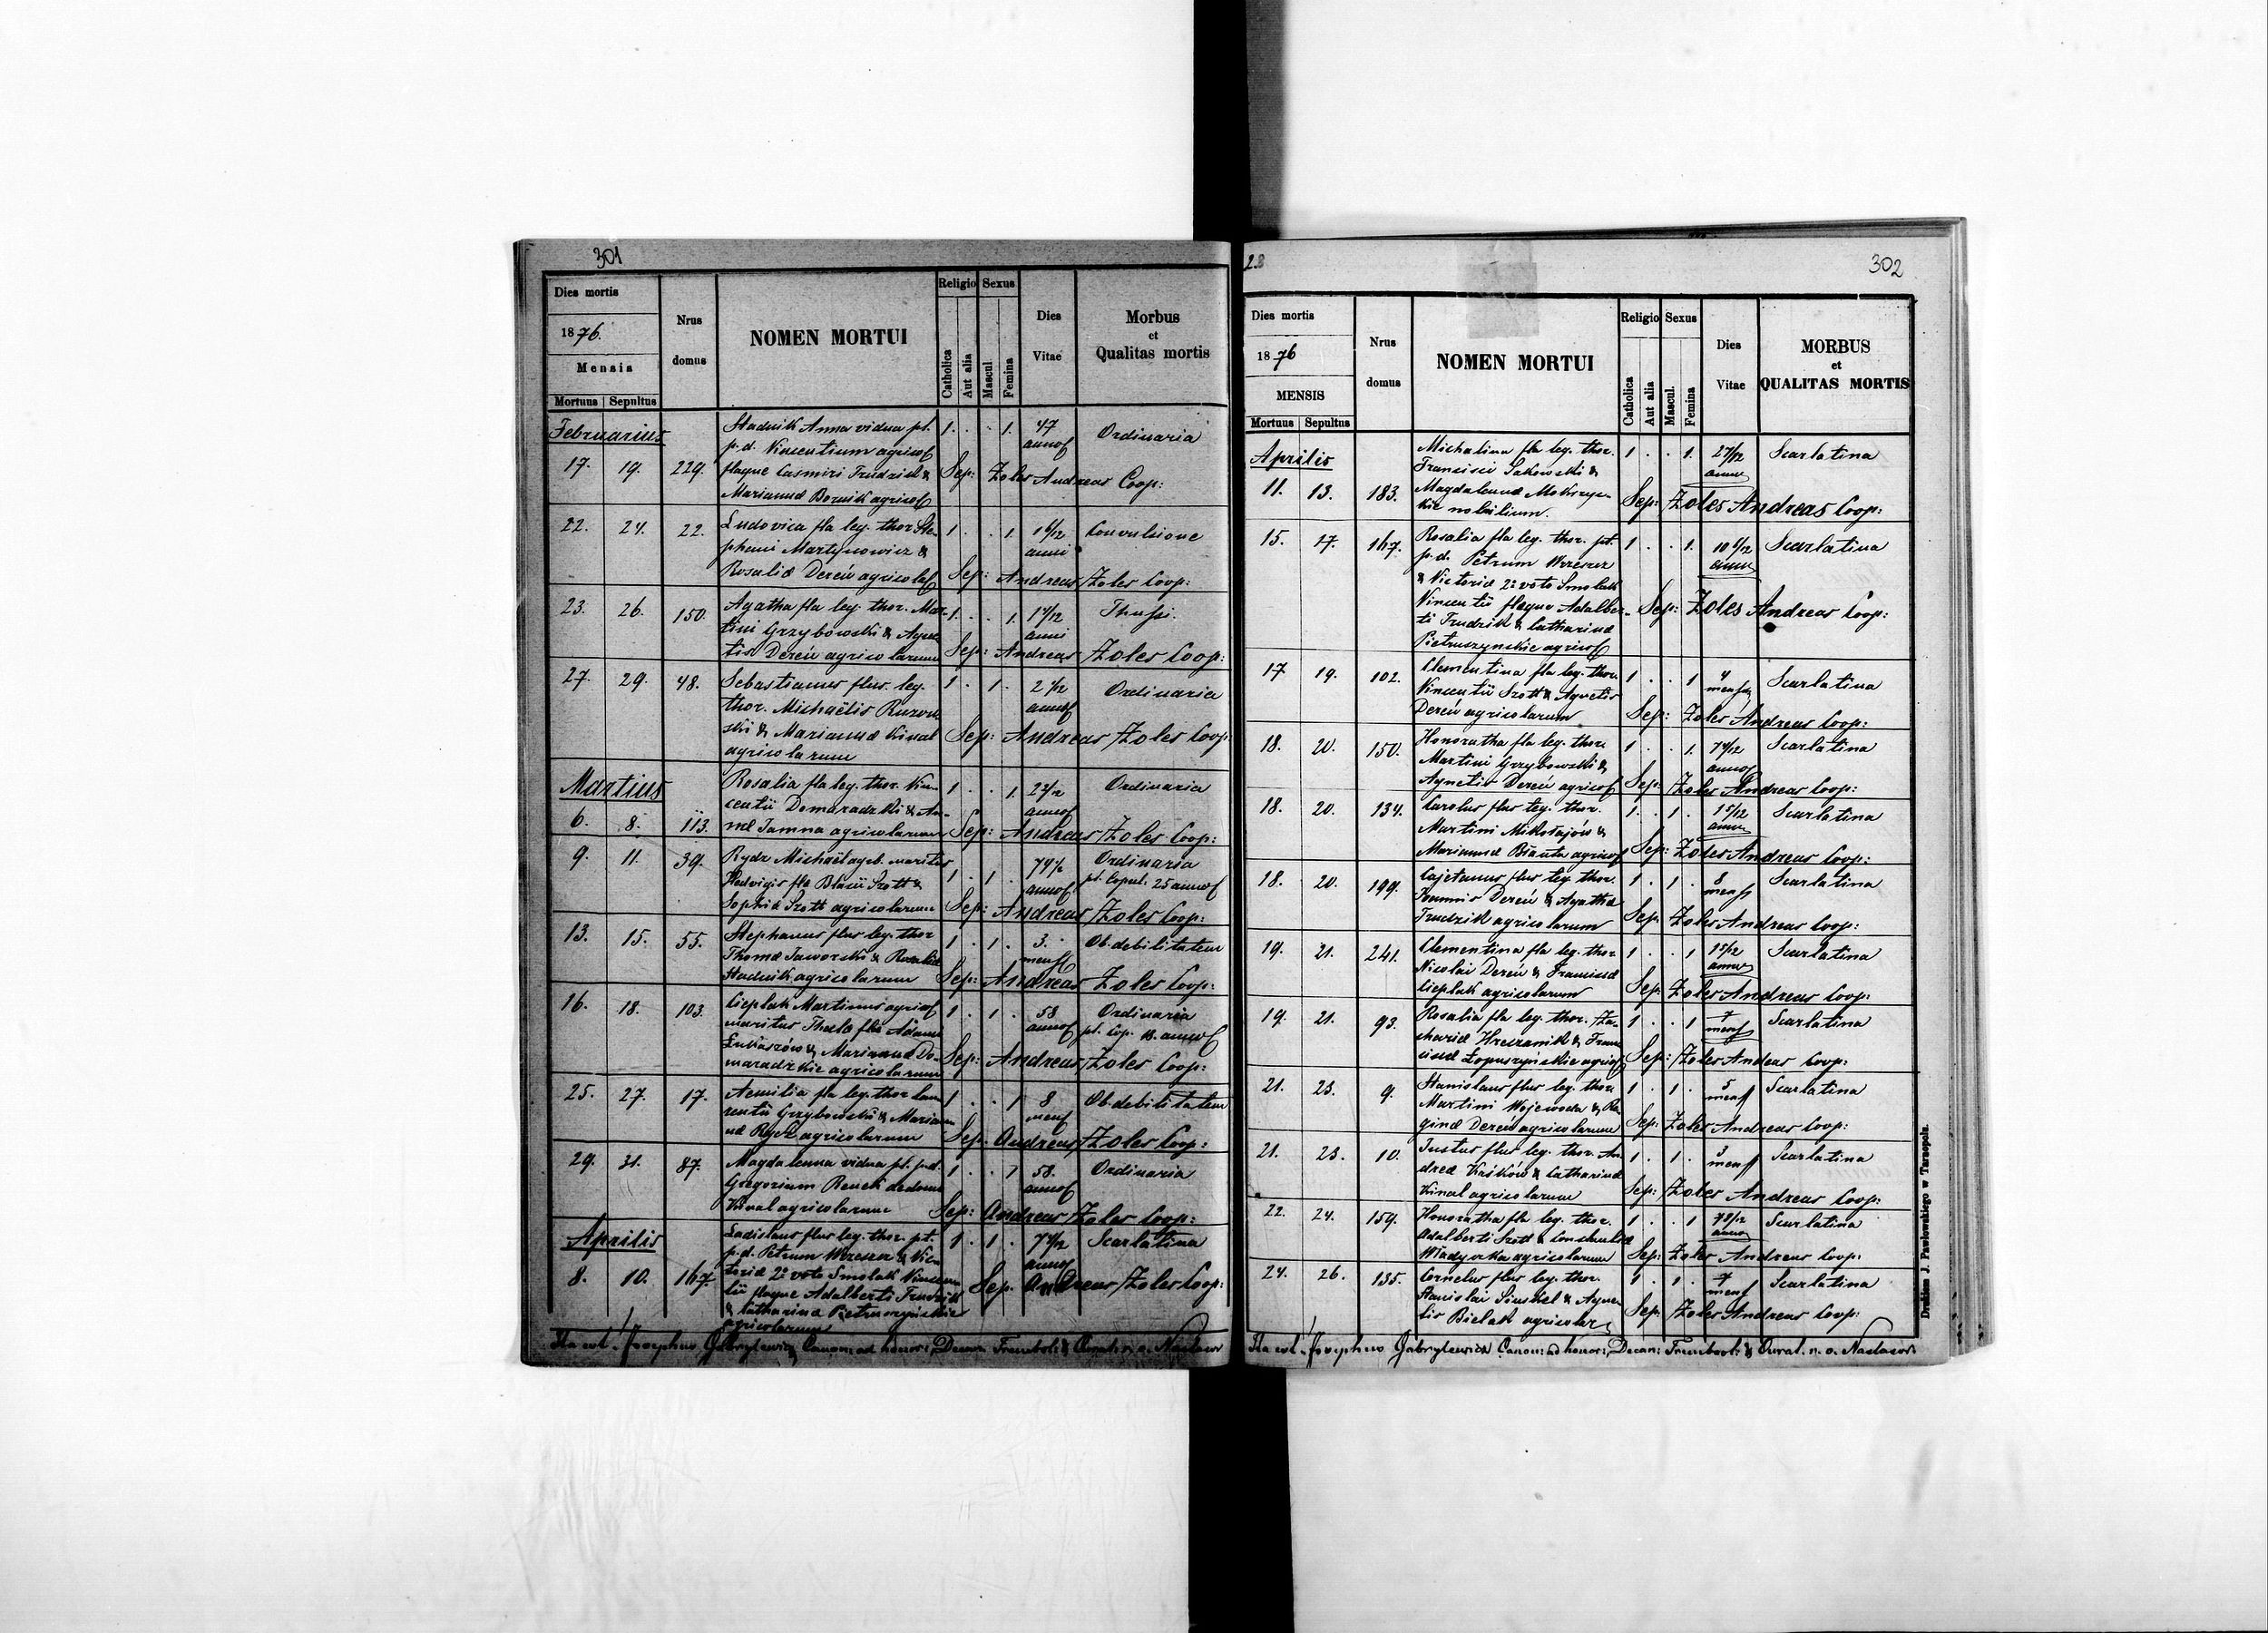 301
Dies mortis
1876.
Mensis
Mortuus Sepultus
Nrus
domus
NOMEN MORTUI
Religio
Catholica
Aut alia
Sexus
Mascul.
Femina
Dies
Vitae
Morbus
et
Qualitas mortis
Februarius
17. 19. 229.
Stadnik Anna vidua pt.
p. d. Vincentium agricol
flaque Casmiri Trudzik &
Mariannæ Bornik agricol
1. . . 1. 47
annos
Ordinaria
Sep: Zoles Andreas Coop:
22. 24. 22.
Ludovica fla leg. thor Ste-
phani Martynowicz &
Rosaliæ Dereń agricolas
1 . . 1. 1 6/12
anni
Convulsione
Sep: Andreas Zoles Coop:
23. 26. 150.
Agatha fla leg. thor. Mar-
tini Grzybowski & Agne-
tis Dereń agricolarum
1. . . 1.
anni
Thussi.
Sep: Andreas Zoles Coop:
27. 29. 48.
Sebastianus flus. leg.
thor. Michaëlis
ski & Mariannæ Kinal
agricolarum
1 . 1 .
annos
Ordinaria
Sep: Andreas Zoles Coop:
Martius
6. 8. 113.
Rosalia fla leg. thor. Vin-
centii Domaradzki & An-
næ Jamna agricolarum
1 . . 1.
annos
Ordinaria
Sep: Andreas Zoles Coop:
9. 11. 39.
Rydz Michaël agrl. maritus
Hedvigis fla Blasii Szott &
Sophiæ Szott agricolarum
1 . 1 .
annos
Ordinaria
pt. Copul. 25 annos
Sep: Andreas Zoles Coop:
13. 15. 55.
Stephanus flus leg. thor
Thomæ Jaworski & Rosaliæ
Stadnik agricolarum
1 . 1 . 3.
mens
Ob. debilitatem
Sep: Andreas Zoles Coop:
16. 18. 103.
Cieplak Martinus agricol
maritus Theclæ flæ Adami
Łukaszów & Mariannæ Do-
maradzkie agricolarum
1 . 1 . 58
annos
Ordinaria
pt. Cop. 18. annos
Sep: Andreas Zoles Coop:
25. 27. 17.
Aemilia fla leg. thor Lau-
rentii Grzybowski & Marian-
næ Rydz agricolarum
1 . . 1 8
mens
Ob. debilitatem
Sep: Andreas Zoles Coop:
29. 31. 87.
Magdalenna vidua pt. p.d.
Gregorium Renek de domo
Kinal agricolarum
1 . . 1 58.
annos
Ordinaria
Sep: Andreas Zoles Coop:
Aprilis
8. 10. 167.
Ladislaus flus leg. thor. pt.
p.d. Petrum Wrzeszcz & Vic-
toriæ 2º voto Smolak Vincen-
tii flaque Adalberti Trudzik
& Catharinæ Pietruszyńskie
agricolarum
1 . 1 .
annos
Scarlatina
Sep: Andreas Zoles Coop:
Ita est. Josephus Gabrylewicz Canon: ad honor: Decan Trembol: & Curat. n. o. Nastasow
28
302
Dies mortis
1876
MENSIS
Mortuus Sepultus
Nrus
domus
NOMEN MORTUI
Religio
Catholica
Aut alia
Sexus
Mascul.
Femina
Dies
Vitae
MORBUS
et
QUALITAS MORTIS
Aprilis
11. 13. 183.
Michalina fla leg. thor.
Francisci Sakowski &
Magdalennæ Mokrzyc-
kie nobilium.
1 . . 1.
annor
Scarlatina
Sep: Zoles Andreas Coop:
15. 17. 167.
Rosalia fla leg. thor. pt.
p. d. Petrum Wrzeszcz
& Victoriæ 2º voto Smolak
Vincentii flaque Adalber-
ti Trudzik & Catharinæ
Pietruszynskie agricol
1 . . 1. 10 6/12
annor
Scarlatina
Sep: Zoles Andreas Coop:
17 19. 102.
Clementina fla leg. thor.
Vincentii Szott & Agnetis
Dereń agricolarum
1 . . 1 4
mens
Scarlatina
Sep: Zoles Andreas Coop:
18. 20. 150.
Honoratha fla leg. thor.
Martini Grzybowski &
Agnetis Dereń agricol
1 . . 1.
annos
Scarlatina
Sep: Zoles Andreas Coop:
18. 20. 134.
Carolus flus leg. thor.
Martini Mikołajów &
Mariannæ Bianta agricol
1 . 1 . 1 5/12
annor
Scarlatina
Sep: Zoles Andreas Coop:
18. 20. 199.
Cajetanus flus leg thor.
Joannis Dereń & Agathæ
Trudzik agricolarum
1 . 1 . 8
mens
Scarlatina
Sep. Zoles Andreas Coop:
19. 21. 241.
Clementina fla leg. thor
Nicolai Dereń & Franciscæ
Cieplak agricolarum
1 . . 1
annor
Scarlatina
Sep: Zoles Andreas Coop:
19. 21. 93.
Rosalia fla leg. thor. Za-
chariæ Hreszanik & Fran-
ciscæ Łopuszyńskie agricol
1 . . 1 7
mens
Scarlatina
Sep: Zoles Andreas Coop:
21. 23. 9.
Stanislaus flus leg. thor.
Martini Wojewoda & Re-
ginæ Dereń agricolarum
1 . 1 . 5
mens
Scarlatina
Sep: Zoles Andreas Coop:
21. 23. 10.
Justus flus leg. thor. An-
dreæ Kuśków & Catharinæ
Kinal agricolarum
1 . 1 . 3
mens
Scarlatina
Sep: Zoles Andreas Coop:
22. 24. 159.
Honoratha fla leg. thor.
Adalberti Szott & Constantiæ
Władyczka agricolarum
1 . . 1
annor
Scarlatina
Sep: Zoles Andreas Coop:
24. 26. 135.
Cornelus flus leg. thor.
Stanislai Sinskel & Agne-
tis Bielak agricolar
1 . 1 . 7
mens
Scarlatina
Sep: Zoles Andreas Coop:
Ita est. Josephus Gabrylewicz Canon: ad honor: Decan: Trembowl: & Curat. n. o. Nastasow
Drukiem J. Pawłowskiego w Tarnopolu.